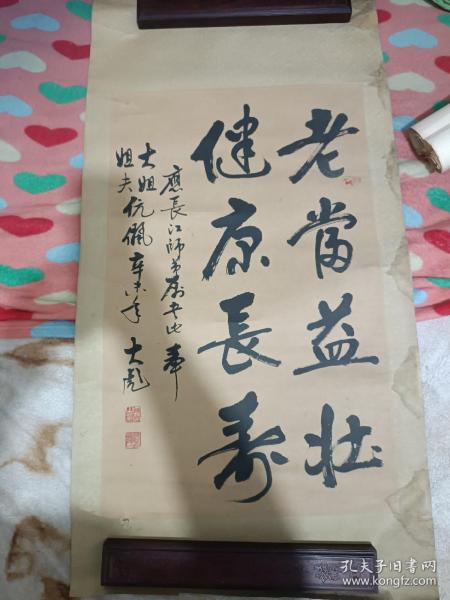 老當益壯
健康長壽
應長江師弟屬書此奉
大姐
姐夫伉儷辛未年大彪
孔夫子旧书网
www.kongfz.com